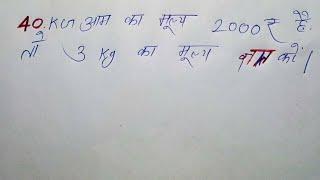 40 KG आम का मूल्य 2000 ₹ है
तो 3 Kg का मूल्य ज्ञात करें।